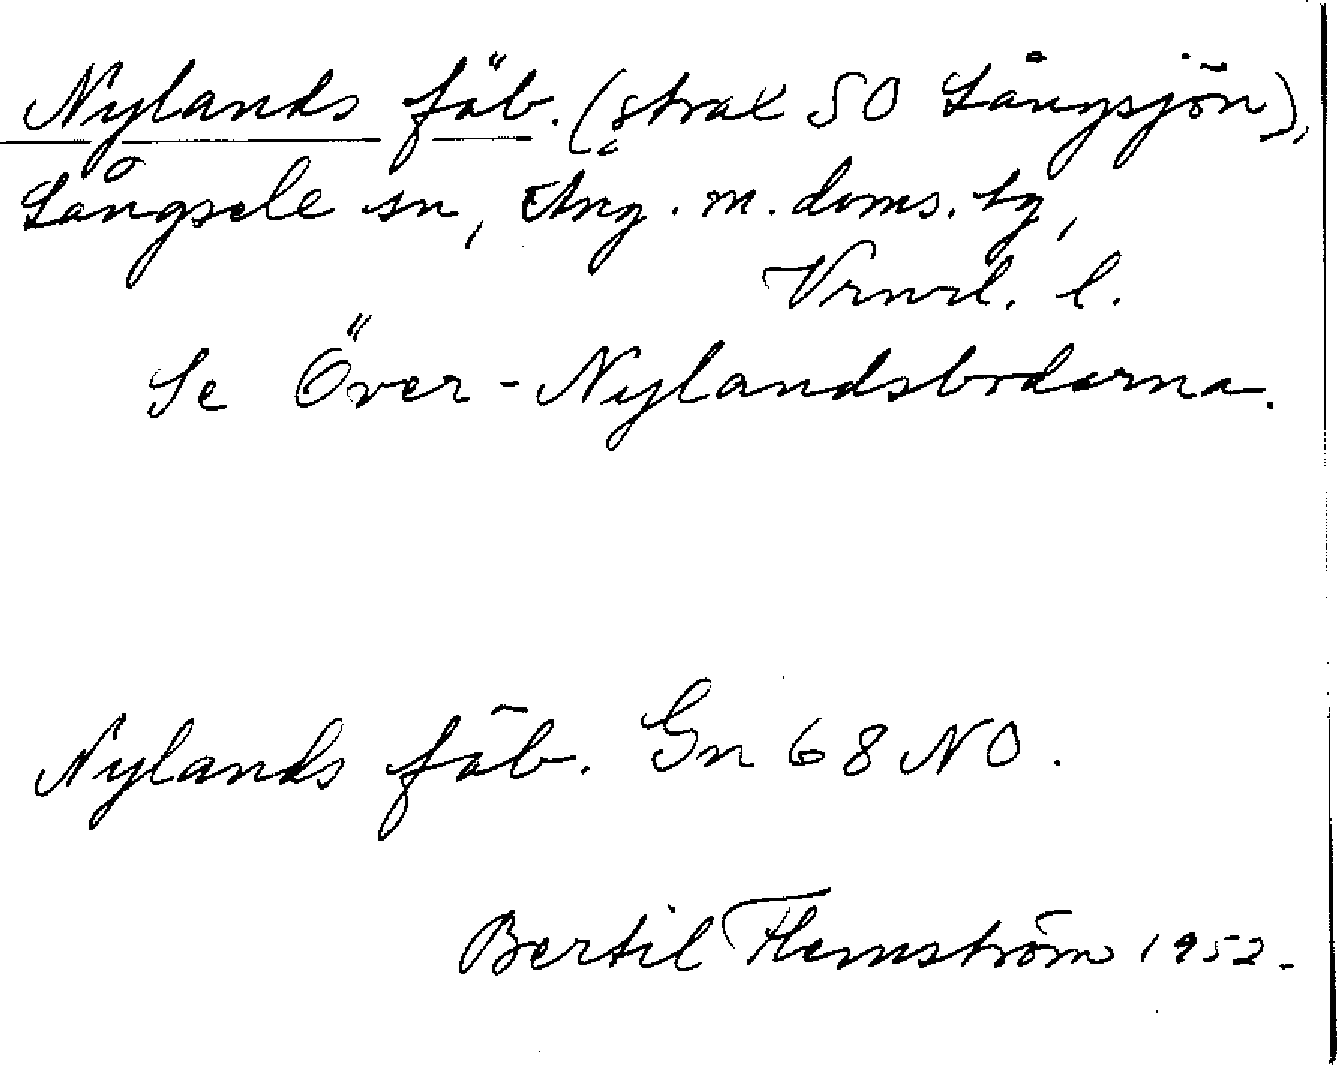 Nylands fäb. (strax SO Långsjön),
Långsele sn, Ång. m. doms. tg,
Vrnrl. l.
Se Över-Nylandsbodarna.
Nylands fäb. Gn 68 NO.
Bertil Flemström 1952.